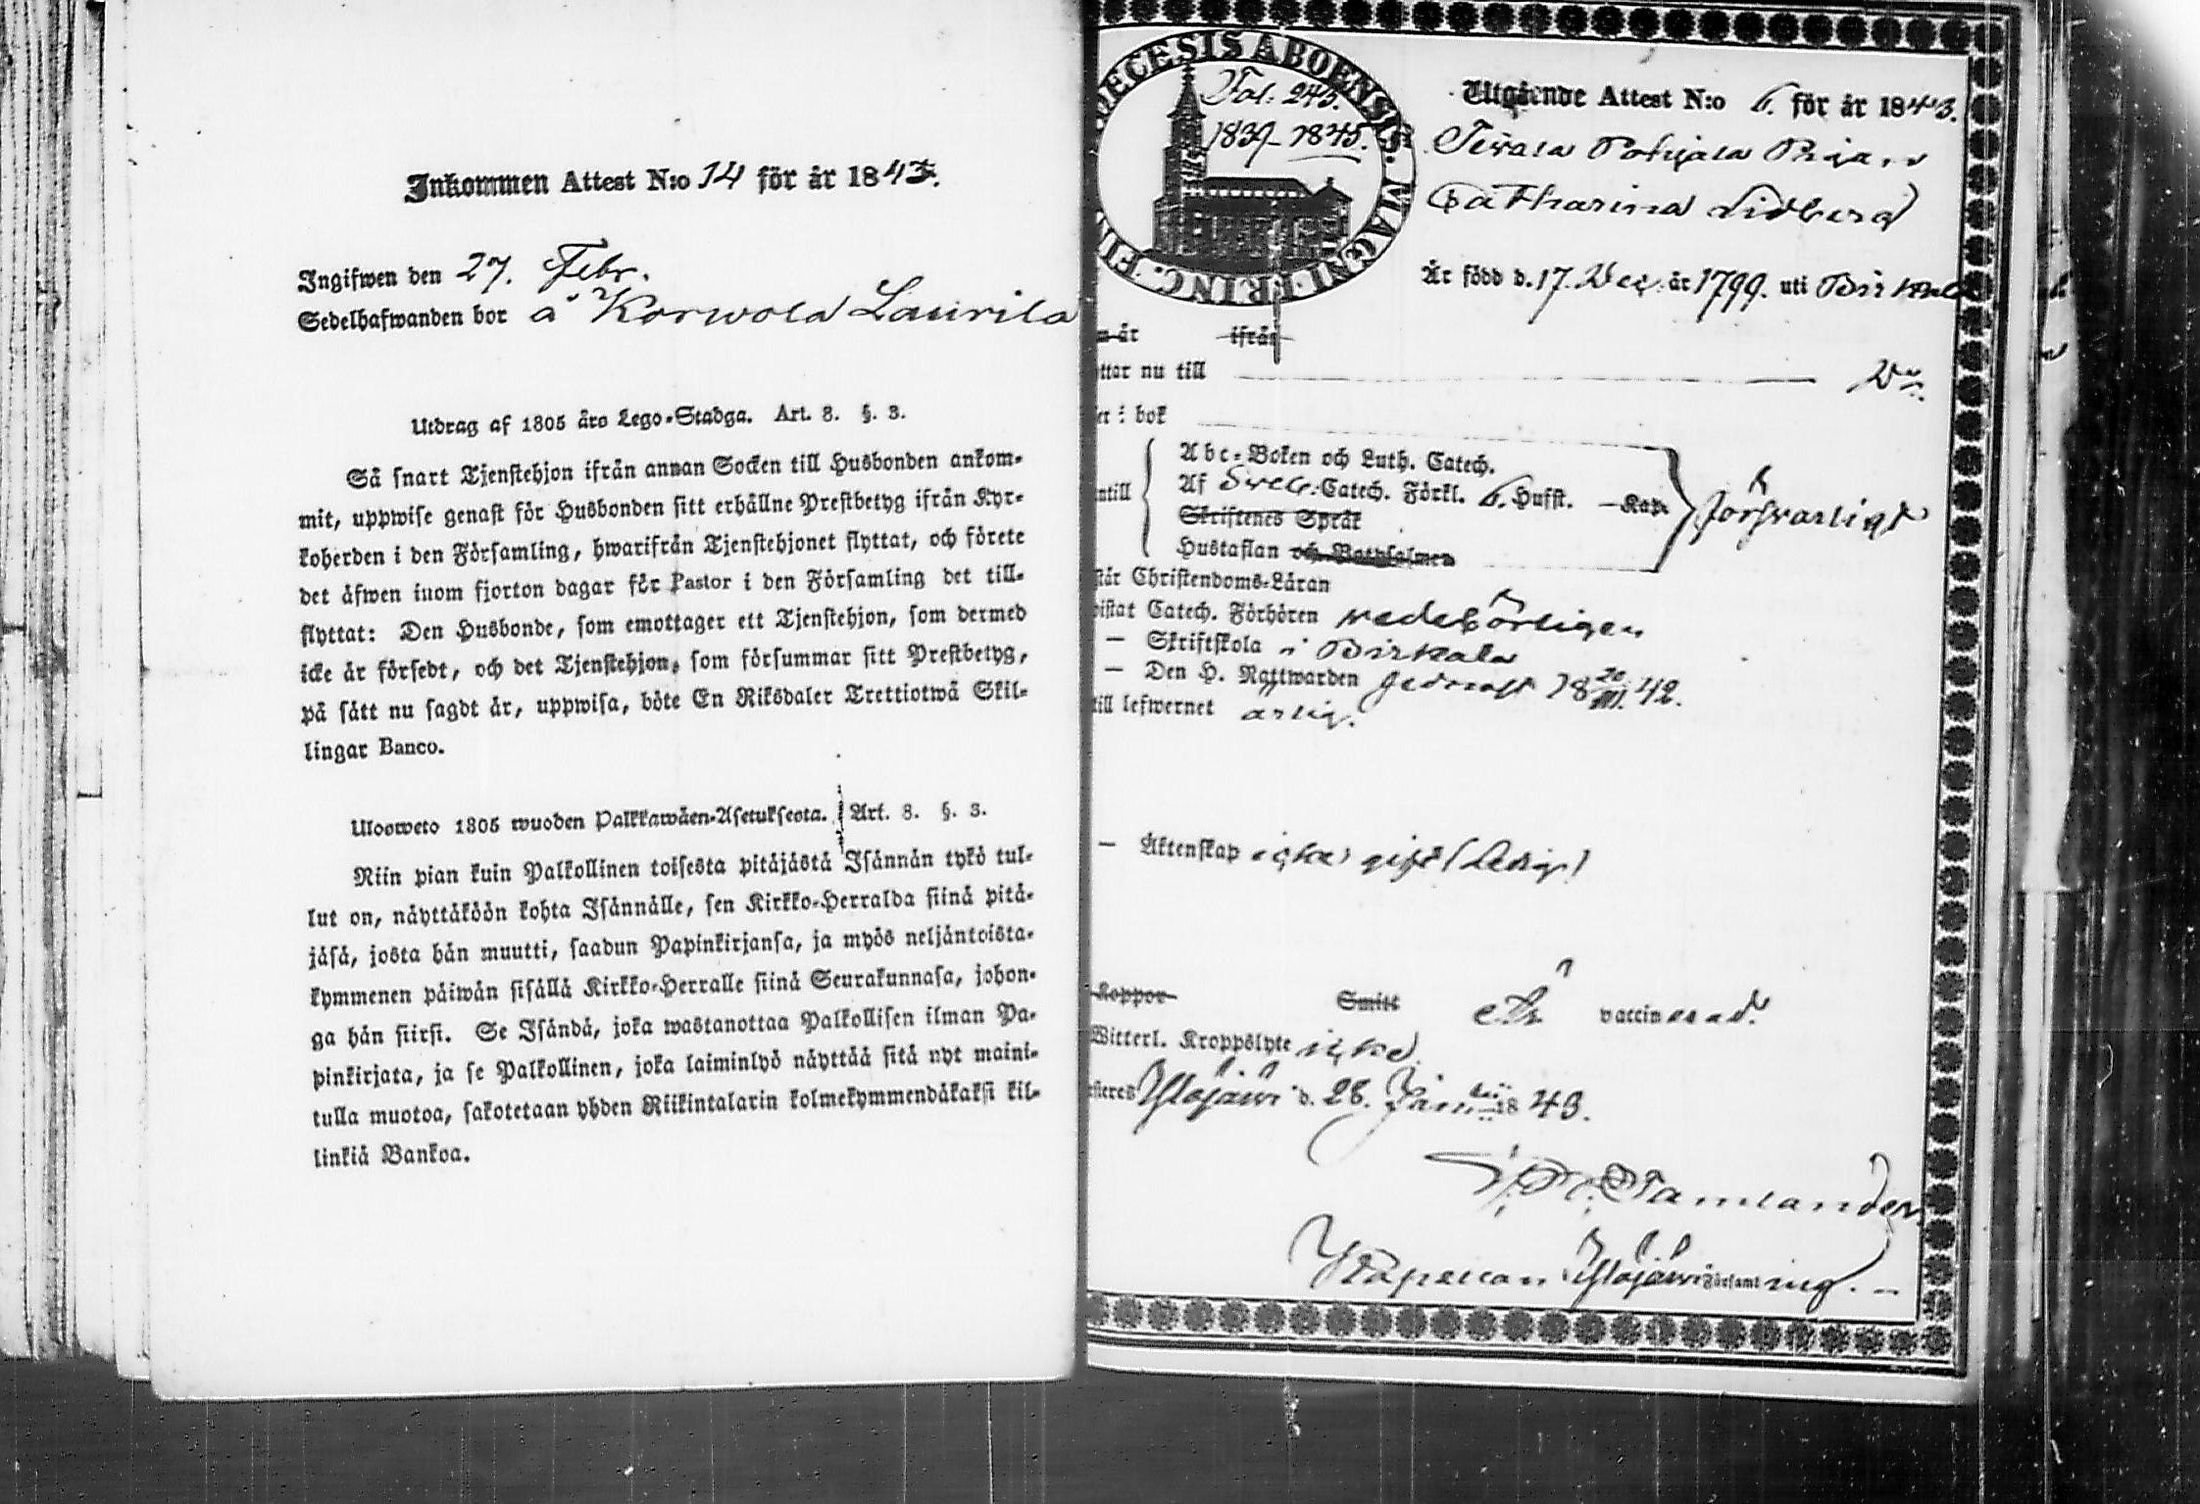 Inkommen Attest N:o 14 för år 1843.
Ingifwen den 27. Febr.
Sedelhafwanden bor å Korwola Laurila
Utdrag af 1805 års Lego-Stadga. Art. 8. §. 3.
Så snart Tjenstehjon ifrån annan Socken till Husbonden ankom-
mit, uppwise genast för Husbonden sitt erhållne Prestbetyg ifrån Kyr-
koherden i den Församling, hwarifrån Tjenstehjonet flyttat, och förete
det äfwen inom fjorton dagar för Pastor i den Församling det till-
flyttat: Den Husbonde, som emottager ett Tjenstehjon, som dermed
icke är försedt, och det Tjenstehjon, som försummar sitt Prestbetyg,
på sätt nu sagdt är, uppwisa, böte En Riksdaler Trettiotwå Skil-
lingar Banco.
Ulosweto 1805 wuoden Palkkawäen-Asetuksesta. Art. 8. §. 3.
Niin pian kuin Palkollinen toisesta pitäjästä Isännän tykö tul-
lut on, näyttäköön kohta Isännälle, sen Kirkko-Herralda siinä pitä-
jäsä, josta hän muutti, saadun Papinkirjansa, ja myös neljäntoista-
kymmenen päiwän sisällä Kirkko-Herralle siinä Seurakunnasa, johon-
ga hän siirsi. Se Isändä, joka wastanottaa Palkollisen ilman Pa-
pinkirjata, ja se Palkollinen, joka laiminlyö näyttää sitä nyt maini-
tulla muotoa, sakotetaan yhden Riikintalarin kolmekymmendäkaksi kil-
linkiä Bankoa.
DECESIS ABOENSIS. MAGNI PRINC. FIN
Fol: 245.
1839-1845.
Utgående Attest N:o 6. för år 1843.
Pohjala Pigan
Catharina Lidberg
Är född d. 17. Dec. år 1799. uti Birkala
år ifrån
ttar nu till
i bok
ntill
Abc-Boken och Luth. Catech.
Af Sveb. Catech. Förkl. 6. Hufst. – Kap.
Skriftenes Språk
Hustaflan och Botpsalmen
försvarligt
står Christendoms-Läran
wistat Catech. Förhören wederbörligen
– Skriftskola i Birkala
– Den H. Nattwarden 18 20/III. 42.
till lefwernet ärlig.
– Äktenskap icke gift (ledig)
Koppor Smitt är vaccinerad.
Witterl. Kroppslyte icke
steres Ylöjärwi d. 28. Januarii 1843.
Tamlander
Kapellan i Ylöjärwi Församling.